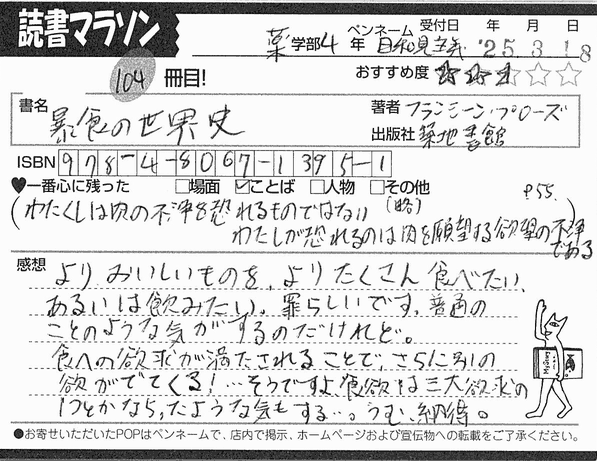 読書マラソン
受付日 年 月 日
薬学部4年 ペンネーム 日和見主義 '25.3.18
104冊目!
おすすめ度 ★★★☆☆
書名 暴食の世界史
著者 フランシーン・プローズ
出版社 築地書館
ISBN 978-4-8067-1395-1
♥一番心に残った □場面 ☑ことば □人物 □その他 P55.
(わたくしは肉の不浄を恐れるものではない (略)
わたしが恐れるのは肉を願望する欲望の不浄である)
感想
よりおいしいものを、よりたくさん食べたい、
あるいは飲みたい。罪らしいです。普通の
ことのような気がするのだけれど。
食への欲求が満たされることで、さらに別の
欲がでてくる!…そうですよ、食欲は三大欲求の
1つとかなら、たような気もする…。うむ、納得。
●お寄せいただいたPOPはペンネームで、店内で掲示、ホームページおよび宣伝物への転載をご了承ください。